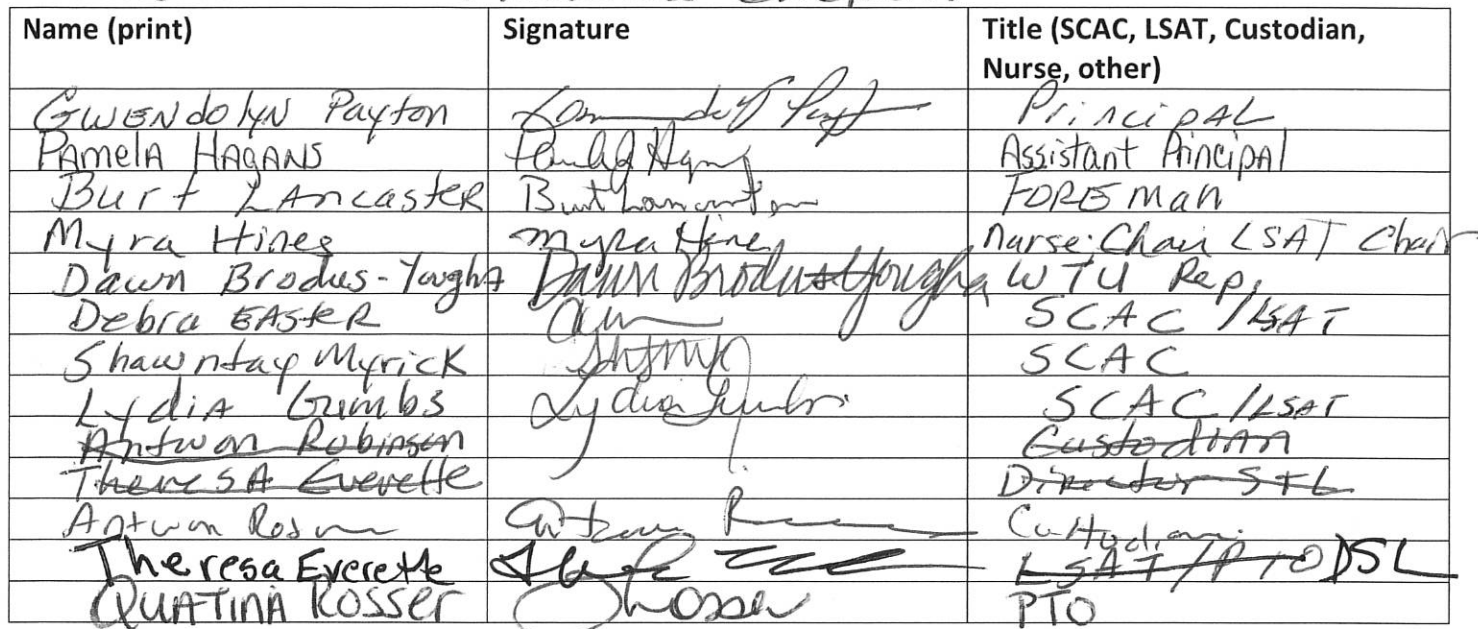 Name (print) Signature Title (SCAC, LSAT, Custodian, Nurse, other)
GWENdolyN Payton Principal
PAmelA HAGANS Assistant Principal
Burt LAncasteR FOREMan
Myra Hines Myra Hines Nurse Chair LSAT Chair
Dawn Brodus-Yougha Dawn Brodus-Yougha WTU Rep.
Debra EASteR SCAC / LSAT
Shawntay Myrick SCAC
LydiA Gumbs Lydia Gumbs SCAC / LSAT
Antwan Robinson Custodian
TheresA Everette Director S+L
Antwan Custodian
Theresa Everette LSAT / PTO DSL
QUATINA ROSSer PTO